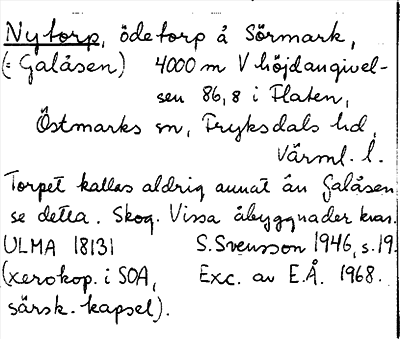 Nytorp, ödetorp å Sörmark,
(= Galåsen) 4000 m V höjdangivel-
sen 86,8 i Flaten,
Östmarks sn, Fryksdals hd,
Värml. l.
Torpet kallas aldrig annat än Galåsen
se detta. Skog. Vissa åbyggnader kvar.
ULMA 18131 S. Svensson 1946, s. 19.
(xerokop. i SOA, Exc. av E.Å. 1968.
särsk. kapsel).